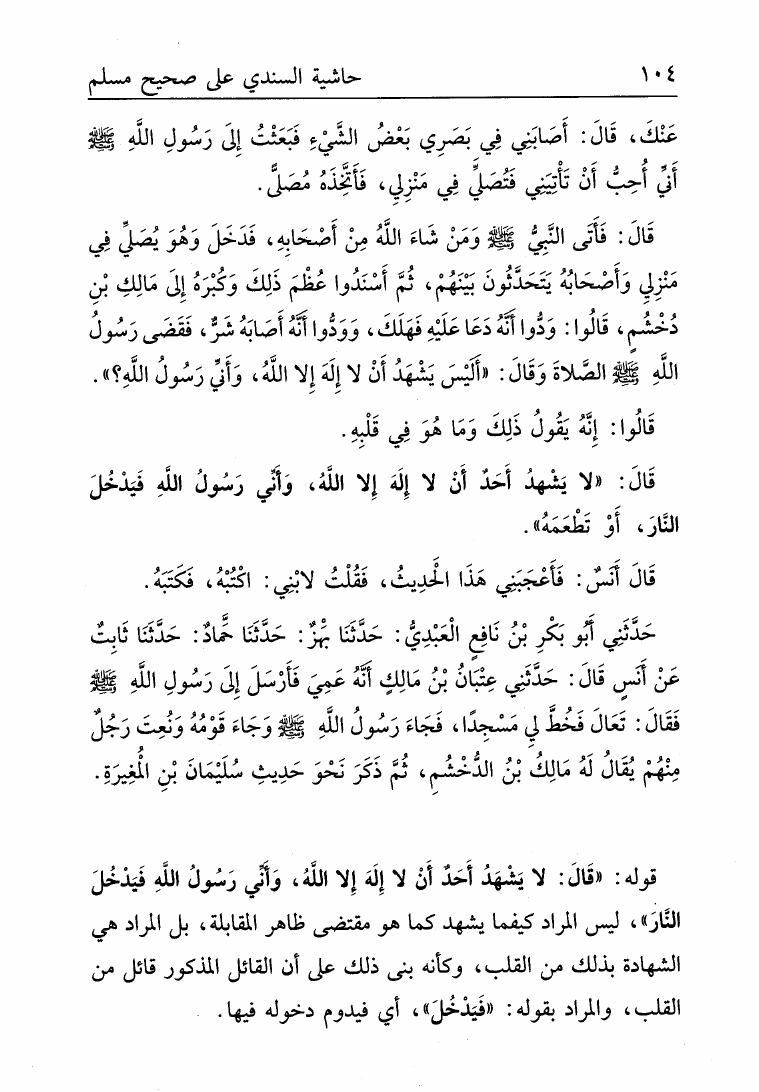 ١٠٤ حاشية السندي على صحيح مسلم
عَنْكَ، قَالَ: أَصَابَنِي فِي بَصَرِي بَعْضُ الشَّيْءِ فَبَعَثْتُ إِلَى رَسُولِ اللَّهِ ﷺ
أَنِّي أُحِبُّ أَنْ تَأْتِيَنِي فَتُصَلِّيَ فِي مَنْزِلِي، فَأَتَّخِذَهُ مُصَلًّى.
قَالَ: فَأَتَى النَّبِيُّ ﷺ وَمَنْ شَاءَ اللَّهُ مِنْ أَصْحَابِهِ، فَدَخَلَ وَهُوَ يُصَلِّي فِي
مَنْزِلِي وَأَصْحَابُهُ يَتَحَدَّثُونَ بَيْنَهُمْ، ثُمَّ أَسْنَدُوا عُظْمَ ذَلِكَ وَكُبْرَهُ إِلَى مَالِكِ بْنِ
دُخْشُمٍ، قَالُوا: وَدُّوا أَنَّهُ دَعَا عَلَيْهِ فَهَلَكَ، وَوَدُّوا أَنَّهُ أَصَابَهُ شَرٌّ، فَقَضَى رَسُولُ
اللَّهِ ﷺ الصَّلاةَ وَقَالَ: «أَلَيْسَ يَشْهَدُ أَنْ لا إِلَهَ إِلا اللَّهُ، وَأَنِّي رَسُولُ اللَّهِ؟».
قَالُوا: إِنَّهُ يَقُولُ ذَلِكَ وَمَا هُوَ فِي قَلْبِهِ.
قَالَ: «لا يَشْهَدُ أَحَدٌ أَنْ لا إِلَهَ إِلا اللَّهُ، وَأَنِّي رَسُولُ اللَّهِ فَيَدْخُلَ
النَّارَ، أَوْ تَطْعَمَهُ».
قَالَ أَنَسٌ: فَأَعْجَبَنِي هَذَا الْحَدِيثُ، فَقُلْتُ لابْنِي: اكْتُبْهُ، فَكَتَبَهُ.
حَدَّثَنِي أَبُو بَكْرِ بْنُ نَافِعٍ الْعَبْدِيُّ: حَدَّثَنَا بَهْزٌ: حَدَّثَنَا حَمَّادٌ: حَدَّثَنَا ثَابِتٌ
عَنْ أَنَسٍ قَالَ: حَدَّثَنِي عِتْبَانُ بْنُ مَالِكٍ أَنَّهُ عَمِيَ فَأَرْسَلَ إِلَى رَسُولِ اللَّهِ ﷺ
فَقَالَ: تَعَالَ فَخُطَّ لِي مَسْجِدًا، فَجَاءَ رَسُولُ اللَّهِ ﷺ وَجَاءَ قَوْمُهُ وَنُعِتَ رَجُلٌ
مِنْهُمْ يُقَالُ لَهُ مَالِكُ بْنُ الدُّخْشُمِ، ثُمَّ ذَكَرَ نَحْوَ حَدِيثِ سُلَيْمَانَ بْنِ الْمُغِيرَةِ.
قوله: «قَالَ: لا يَشْهَدُ أَحَدٌ أَنْ لا إِلَهَ إِلا اللَّهُ، وَأَنِّي رَسُولُ اللَّهِ فَيَدْخُلَ
النَّارَ»، ليس المراد كيفما يشهد كما هو مقتضى ظاهر المقابلة، بل المراد هي
الشهادة بذلك من القلب، وكأنه بنى ذلك على أن القائل المذكور قائل من
القلب، والمراد بقوله: «فَيَدْخُلَ»، أي فيدوم دخوله فيها.